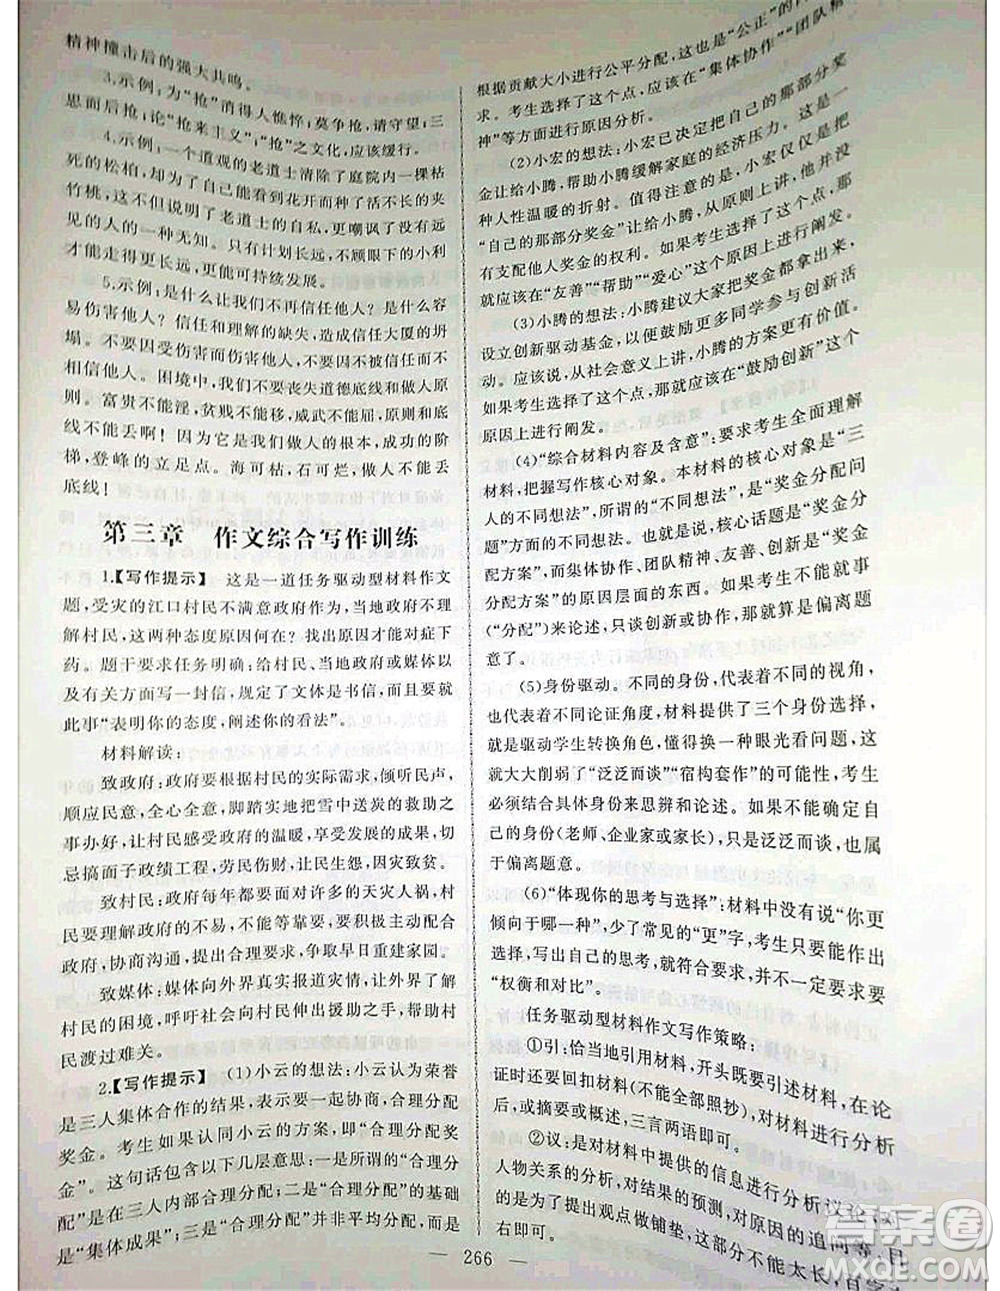 精神撞击后的强大共鸣。
3.示例:为“抢”消得人憔悴;莫争抢,请守望;三
思而后抢;论“抢来主义”;“抢”之文化,应该缓行。
4.示例:一个道观的老道士清除了庭院内一棵枯
死的松柏,为了自己能看到花开而种了活不长的夹
竹桃,这不但说明了老道士的自私,更嘲讽了没有远
见的人的一种无知。只有计划长远,不顾眼下的小利
才能走得更长远,更能可持续发展。
5.示例:是什么让我们不再信任他人?是什么容
易伤害他人?信任和理解的缺失,造成信任大厦的坍
塌。不要因受到伤害而去伤害他人,不要因不信任而不
相信他人。困境中,我们不要丧失道德底线和做人原
则。富贵不能淫,贫贱不能移,威武不能屈,原则和信
任不能丢啊!因为它是做人的根本,成功的阶
梯,登峰的立足点。海可枯,石可烂,做人不能丢
底线!
第三章　作文综合写作训练
1.【写作提示】　这是一道任务驱动型材料作文
题,受灾的江口村民不满意政府作为,当地政府不理
解村民,这两种态度原因何在?找出原因才能对症下
药。题干要求任务明确:给村民、当地政府或媒体以
及有关方面写一封信,规定了文体是书信,而且要就
此事“表明你的态度,阐述你的看法”。
材料解读:
致政府:政府要根据村民的实际需求,倾听民声,
顺应民意,全心全意,脚踏实地把雪中送炭的救助之
事办好,让村民感受政府的温暖,享受发展的成果,切
忌搞面子政绩工程,劳民伤财,让民生怨,因灾致贫。
致村民:政府每年都要面对许多的天灾人祸,村
民要理解政府的不易,不能等靠要,要积极主动配合
政府,协商沟通,提出合理要求,争取早日重建家园。
致媒体:媒体向外界真实报道灾情,传达受灾
村民的困境,呼吁社会向村民伸出援助之手,帮助村
民渡过难关。
2.【写作提示】　(1)小云的想法:小云认为荣誉
是三人集体合作的结果,表示要一起协商,合理分配
奖金。考生如果认同小云的方案,即“合理分配奖
金”。这句话包含以下几层意思:一是所谓的“合理分
配”是在三人内部合理分配;二是“合理分配”的基础
是“集体成果”;三是“合理分配”并非平均分配,而是
根据贡献大小进行公平分配,这也是“公正”的
求。考生选择了这个点,应该在“集体协作”“团队精
神”等方面进行原因分析。
(2)小宏的想法:小宏已决定把自己的那部分奖
金让给小腾,帮助小腾缓解家庭的经济压力。这是一
种人性温暖的折射。值得注意的是,小宏仅仅是将
“自己的那部分奖金”让给小腾,从原则上讲,他并没
有支配他人奖金的权利。如果考生选择了这个点,
就应该在“友善”“帮助”“爱心”这个原因上进行阐发。
(3)小腾的想法:小腾建议大家把奖金都拿出来,
设立创新驱动基金,以便鼓励更多同学参与创新活
动。应该说,从社会意义上讲,小腾的方案更有价值。
如果考生选择了这个点,那就应该在“鼓励创新”这个
原因上进行阐发。
(4)“综合材料内容及含意”:要求考生全面理解
材料,把握写作核心对象。本材料的核心对象是“三
人的不同想法”,所谓的“不同想法”,是“奖金分配问
题”方面的不同想法。因此,核心话题是“奖金分
配方案”,而集体协作、团队精神、友善、创新是“奖金
分配方案”的原因层面的东西。如果考生不能就事
(“分配”)来论述,只谈创新或协作,那就算是偏离题
意了。
(5)身份驱动。不同的身份,代表着不同的视角,
也代表着不同论证角度,材料提供了三个身份选择,
就是驱动学生转换角色,懂得换一种眼光看问题,这
就大大削弱了“泛泛而谈”“宿构套作”的可能性,考生
必须结合具体身份来思辨和论述。如果不能确定自
己的身份(老师、企业家或家长),只是泛泛而谈,也算
属于偏离题意。
(6)“体现你的思考与选择”:材料中没有说“你更
倾向于哪一种”,少了常见的“更”字,考生只要能作出
选择,写出自己的思考,就符合要求,并不一定要求要
“权衡和对比”。
任务驱动型材料作文写作策略:
①引:恰当地引用材料,开头既要引述材料,在论
证时还要回扣材料(不能全部照抄),对材料进行分析
后,或直引,或概述,三言两语即可。
②议:是对材料中提供的信息进行分析议论,对
人物关系的分析,对材料结果的预测,对原因的追问等,目
的是为了提出观点做铺垫,这部分不能太长,百字左
右即可。
— 266 —
答案卷
MXQE.COM